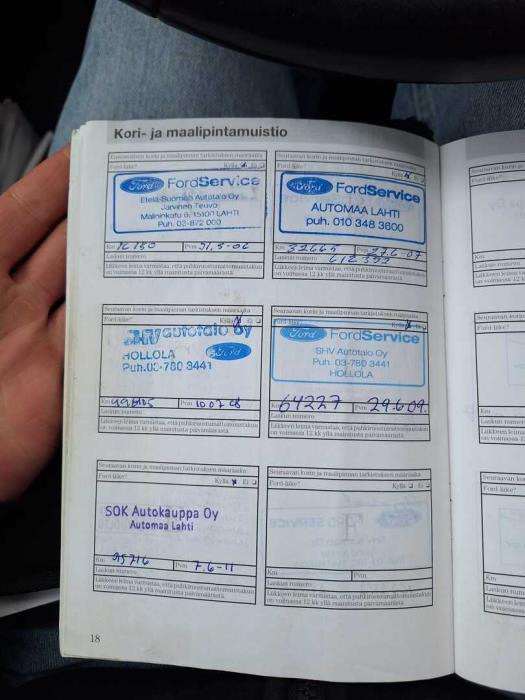 Kori- ja maalipintamuistio
Ensimmäisen korin ja maalipinnan tarkistuksen määräaika
Ford-liike? Kyllä Ei
Ford FordService
Etelä-Suomen Autotalo Oy
Järvinen Teuvo
Malininkatu 6, 15100 LAHTI
Puh. 03-872 000
Km 16150 Pvm 31.5-06
Laskun numero
Liikkeen leima varmistaa, että puhkiruostumattomuustakuu
on voimassa 12 kk yllä mainitusta päivämäärästä.
Seuraavan korin ja maalipinnan tarkistuksen määräaika
Ford-liike? Kyllä Ei
Ford FordService
AUTOMAA LAHTI
puh. 010 348 3600
Km 32665 Pvm 27.6-07
Laskun numero
Liikkeen leima varmistaa, että puhkiruostumattomuustakuu
on voimassa 12 kk yllä mainitusta päivämäärästä.
Seuraavan korin ja maalipinnan tarkistuksen määräaika
Ford-liike? Kyllä Ei
autotalo oy
HOLLOLA Ford
Puh.03-780 3441
Km Pvm 10.07 08
Laskun numero
Liikkeen leima varmistaa, että puhkiruostumattomuustakuu
on voimassa 12 kk yllä mainitusta päivämäärästä.
Seuraavan korin ja maalipinnan tarkistuksen määräaika
Ford-liike? Kyllä Ei
Ford FordService
SHV Autotalo Oy
Puh. 03-780 3441
HOLLOLA
Km 64227 Pvm 29.6.09.
Laskun numero
Liikkeen leima varmistaa, että puhkiruostumattomuustakuu
on voimassa 12 kk yllä mainitusta päivämäärästä.
Seuraavan korin ja maalipinnan tarkistuksen määräaika
Ford-liike? Kyllä Ei
SOK Autokauppa Oy
Automaa Lahti
Km 95716 Pvm 7.6-11
Laskun numero
Liikkeen leima varmistaa, että puhkiruostumattomuustakuu
on voimassa 12 kk yllä mainitusta päivämäärästä.
Seuraavan korin ja maalipinnan tarkistuksen määräaika
Ford-liike? Kyllä Ei
Km Pvm
Laskun numero
Liikkeen leima varmistaa, että puhkiruostumattomuustakuu
on voimassa 12 kk yllä mainitusta päivämäärästä.
18